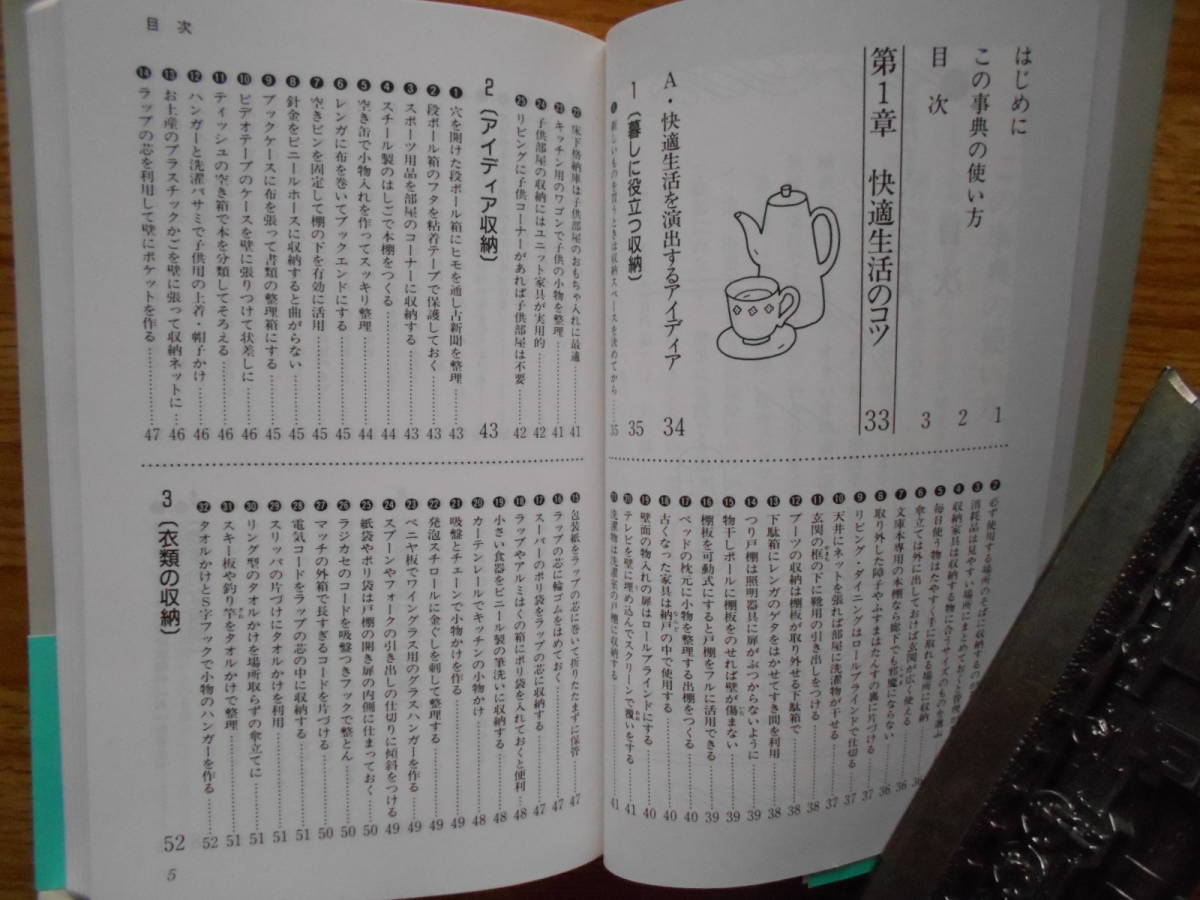 はじめに 1
この事典の使い方 2
目次 3
第1章 快適生活のコツ 33
A・快適生活を演出するアイディア 34
1〔暮しに役立つ収納〕 35
❶新しいものを買うときは収納スペースを決めてから 35
❷必ず使用する場所のそばに収納するの
❸消耗品は見やすい場所にまとめておくと
❹収納家具は収納する物に合うサイズのものを選ぶ
❺毎日使う物はたやすく手に取れる場所に収納
❻傘立ては外に出しておけば玄関が広く使える 36
❼文庫本専用の本棚なら廊下でも邪魔にならない 36
❽取り外した障子やふすまはたんすの裏に片づける 36
❾リビング・ダイニングはロールブラインドで仕切る 37
❿天井にネットを張れば部屋に洗濯物が干せる 37
⓫玄関の框の下に靴用の引き出しをつける 37
⓬ブーツの収納は棚板が取り外せる下駄箱で 38
⓭下駄箱にレンガのゲタをはかせてすき間を利用 38
⓮つり戸棚は照明器具に扉がぶつからないように 39
⓯物干しポールに棚板をのせれば壁が傷まない 39
⓰棚板を可動式にすると戸棚をフルに活用できる 39
⓱ベッドの枕元に小物を整理する出棚をつくる 40
⓲古くなった家具は納戸の中で使用する 40
⓳壁面の物入れの扉はロールブラインドにする 40
⓴テレビを壁に埋め込んでスクリーンで覆いをする 41
㉑洗濯物は洗濯室の戸棚に収納する 41
目次
㉒床下格納庫は子供部屋のおもちゃ入れに最適 41
㉓キッチン用のワゴンで子供の小物を整理 41
㉔子供部屋の収納にはユニット家具が実用的 42
㉕リビングに子供コーナーがあれば子供部屋は不要 42
2〔アイディア収納〕 43
❶穴を開けた段ボール箱にヒモを通し古新聞を整理 43
❷段ボール箱のフタを粘着テープで保護しておく 43
❸スポーツ用品を部屋のコーナーに収納する 43
❹スチール製のはしごで本棚をつくる 44
❺空き缶で小物入れを作ってスッキリ整理 44
❻レンガに布を巻いてブックエンドにする 45
❼空きビンを固定して棚の下を有効に活用 45
❽針金をビニールホースに収納すると曲がらない 45
❾ブックケースに布を張って書類の整理箱にする 45
❿ビデオテープのケースを壁に張りつけて状差しに 46
⓫ティッシュの空き箱で本を分類してそろえる 46
⓬ハンガーと洗濯バサミで子供用の上着・帽子かけ 46
⓭お土産のプラスチックかごを壁に張って収納ネットに 46
⓮ラップの芯を利用して壁にポケットを作る 47
⓯包装紙をラップの芯に巻いて折りたたまずに保管 47
⓰ラップの芯に輪ゴムをはめておく 47
⓱スーパーのポリ袋をラップの芯に収納する 47
⓲ラップやアルミはくの箱にポリ袋を入れておくと便利 48
⓳小さい食器をビニール製の筆洗いに収納する 48
⓴カーテンレールでキッチンの小物かけ 48
㉑吸盤とチェーンで小物かけを作る 49
㉒発泡スチロールに金ぐしを刺して整理する 49
㉓ベニヤ板でワイングラス用のグラスハンガーを作る 49
㉔スプーンやフォークの引き出しの仕切りに傾斜をつける 49
㉕紙袋やポリ袋は戸棚の開き扉の内側に仕まっておく 50
㉖ラジカセのコードを吸盤つきフックで整とん 50
㉗マッチの外箱で長すぎるコードを片づける 50
㉘電気コードをラップの芯の中に収納する 51
㉙スリッパの片づけにタオルかけを利用 51
㉚リング型のタオルかけを場所取らずの傘立てに 51
㉛スキー板や釣り竿をタオルかけで整理 51
㉜タオルかけとS字フックで小物のハンガーを作る 52
3〔衣類の収納〕 52
5